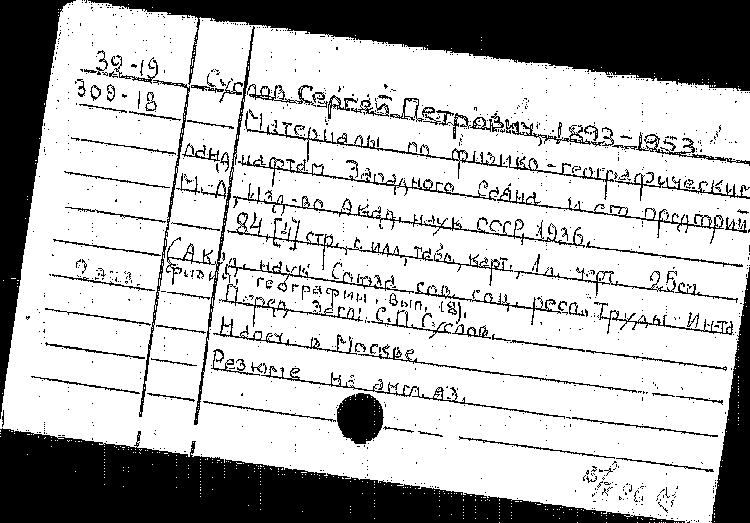 39-19.
309-18
Суслов Сергей Петрович, 1893-1953.
Материалы по физико-географическим
ландшафтам Западного Саяна и его предгорий.
М.-Л., Изд-во Акад. наук СССР, 1936.
84, [4] стр., с илл., табл., карт., 1 л. черт. 25 см.
(Акад. наук Союза сов. соц. респ. Труды Ин-та
физич. географии. Вып. 18).
2 экз.
Перед загл.: С.П. Суслов.
Напеч. в Москве.
Резюме на англ. яз.